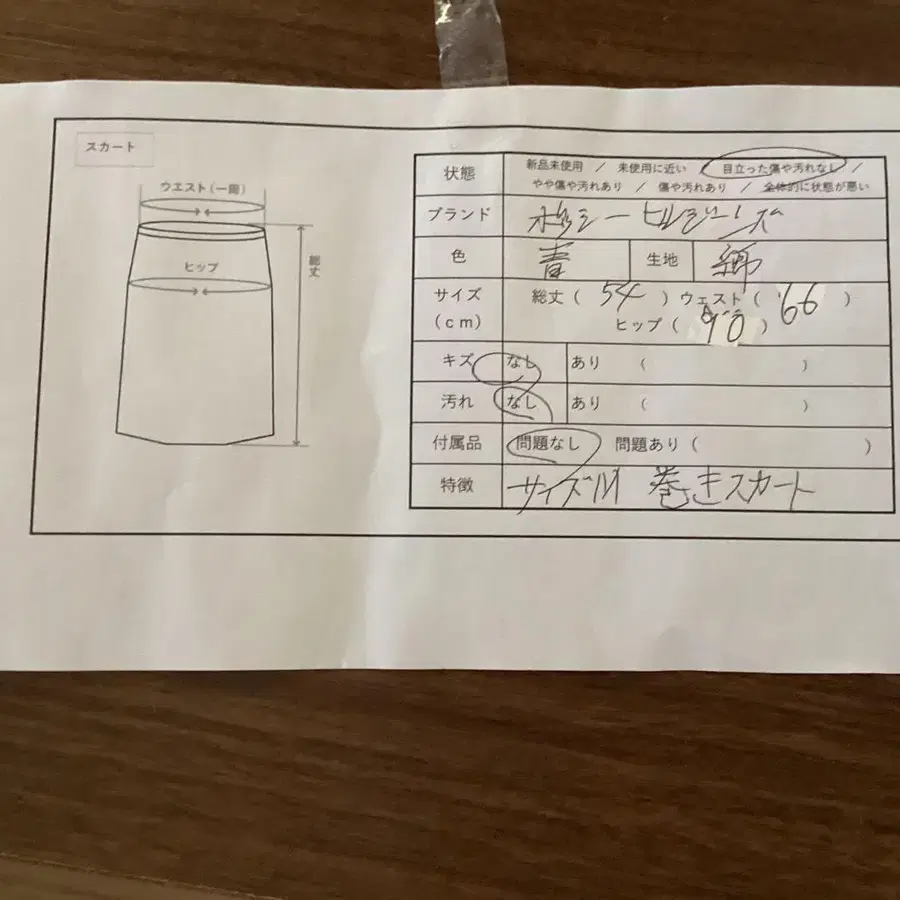 スカート
ウエスト(一周)
ヒップ
総丈
状態 新品未使用 / 未使用に近い / 目立った傷や汚れなし /
やや傷や汚れあり / 傷や汚れあり / 全体的に状態が悪い
ブランド
色 青 生地 綿
サイズ 総丈( 54 ) ウェスト( 66 )
(cm) ヒップ( 90 )
キズ なし あり ( )
汚れ なし あり ( )
付属品 問題なし 問題あり( )
特徴 サイズM 巻きスカート